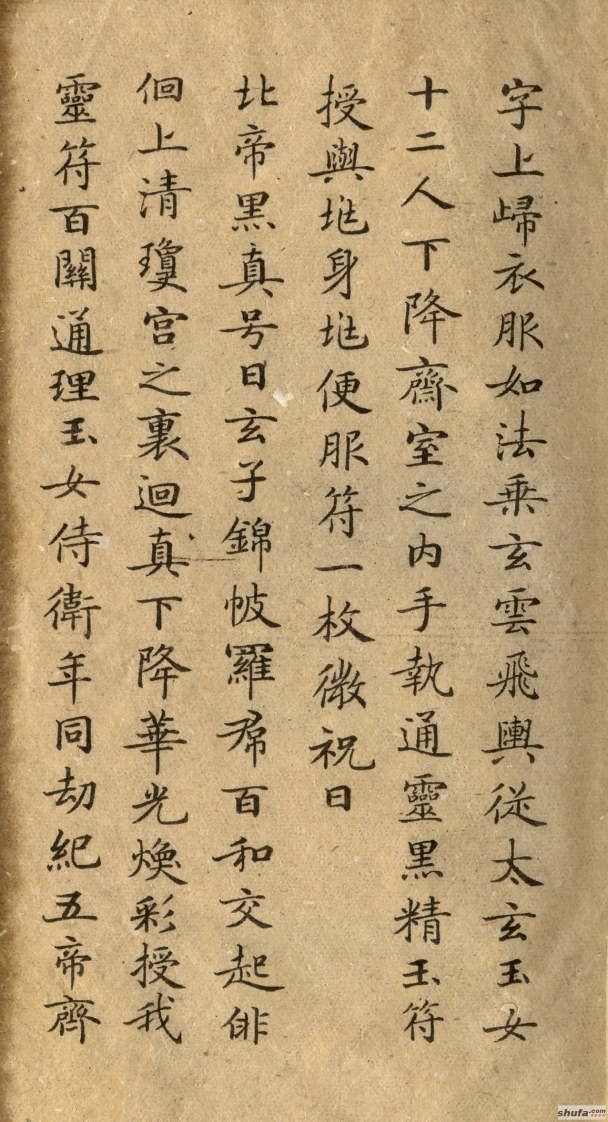 字上歸衣服如法乘玄雲飛輿從太玄玉女
十二人下降齋室之内手執通靈黑精玉符
授與兆身兆便服符一枚微祝曰
北帝黑真号曰玄子錦帔羅帬百和交起俳
佪上清瓊宮之裏迴真下降華光煥彩授我
靈符百關通理玉女侍衛年同劫紀五帝齊
shufa.com